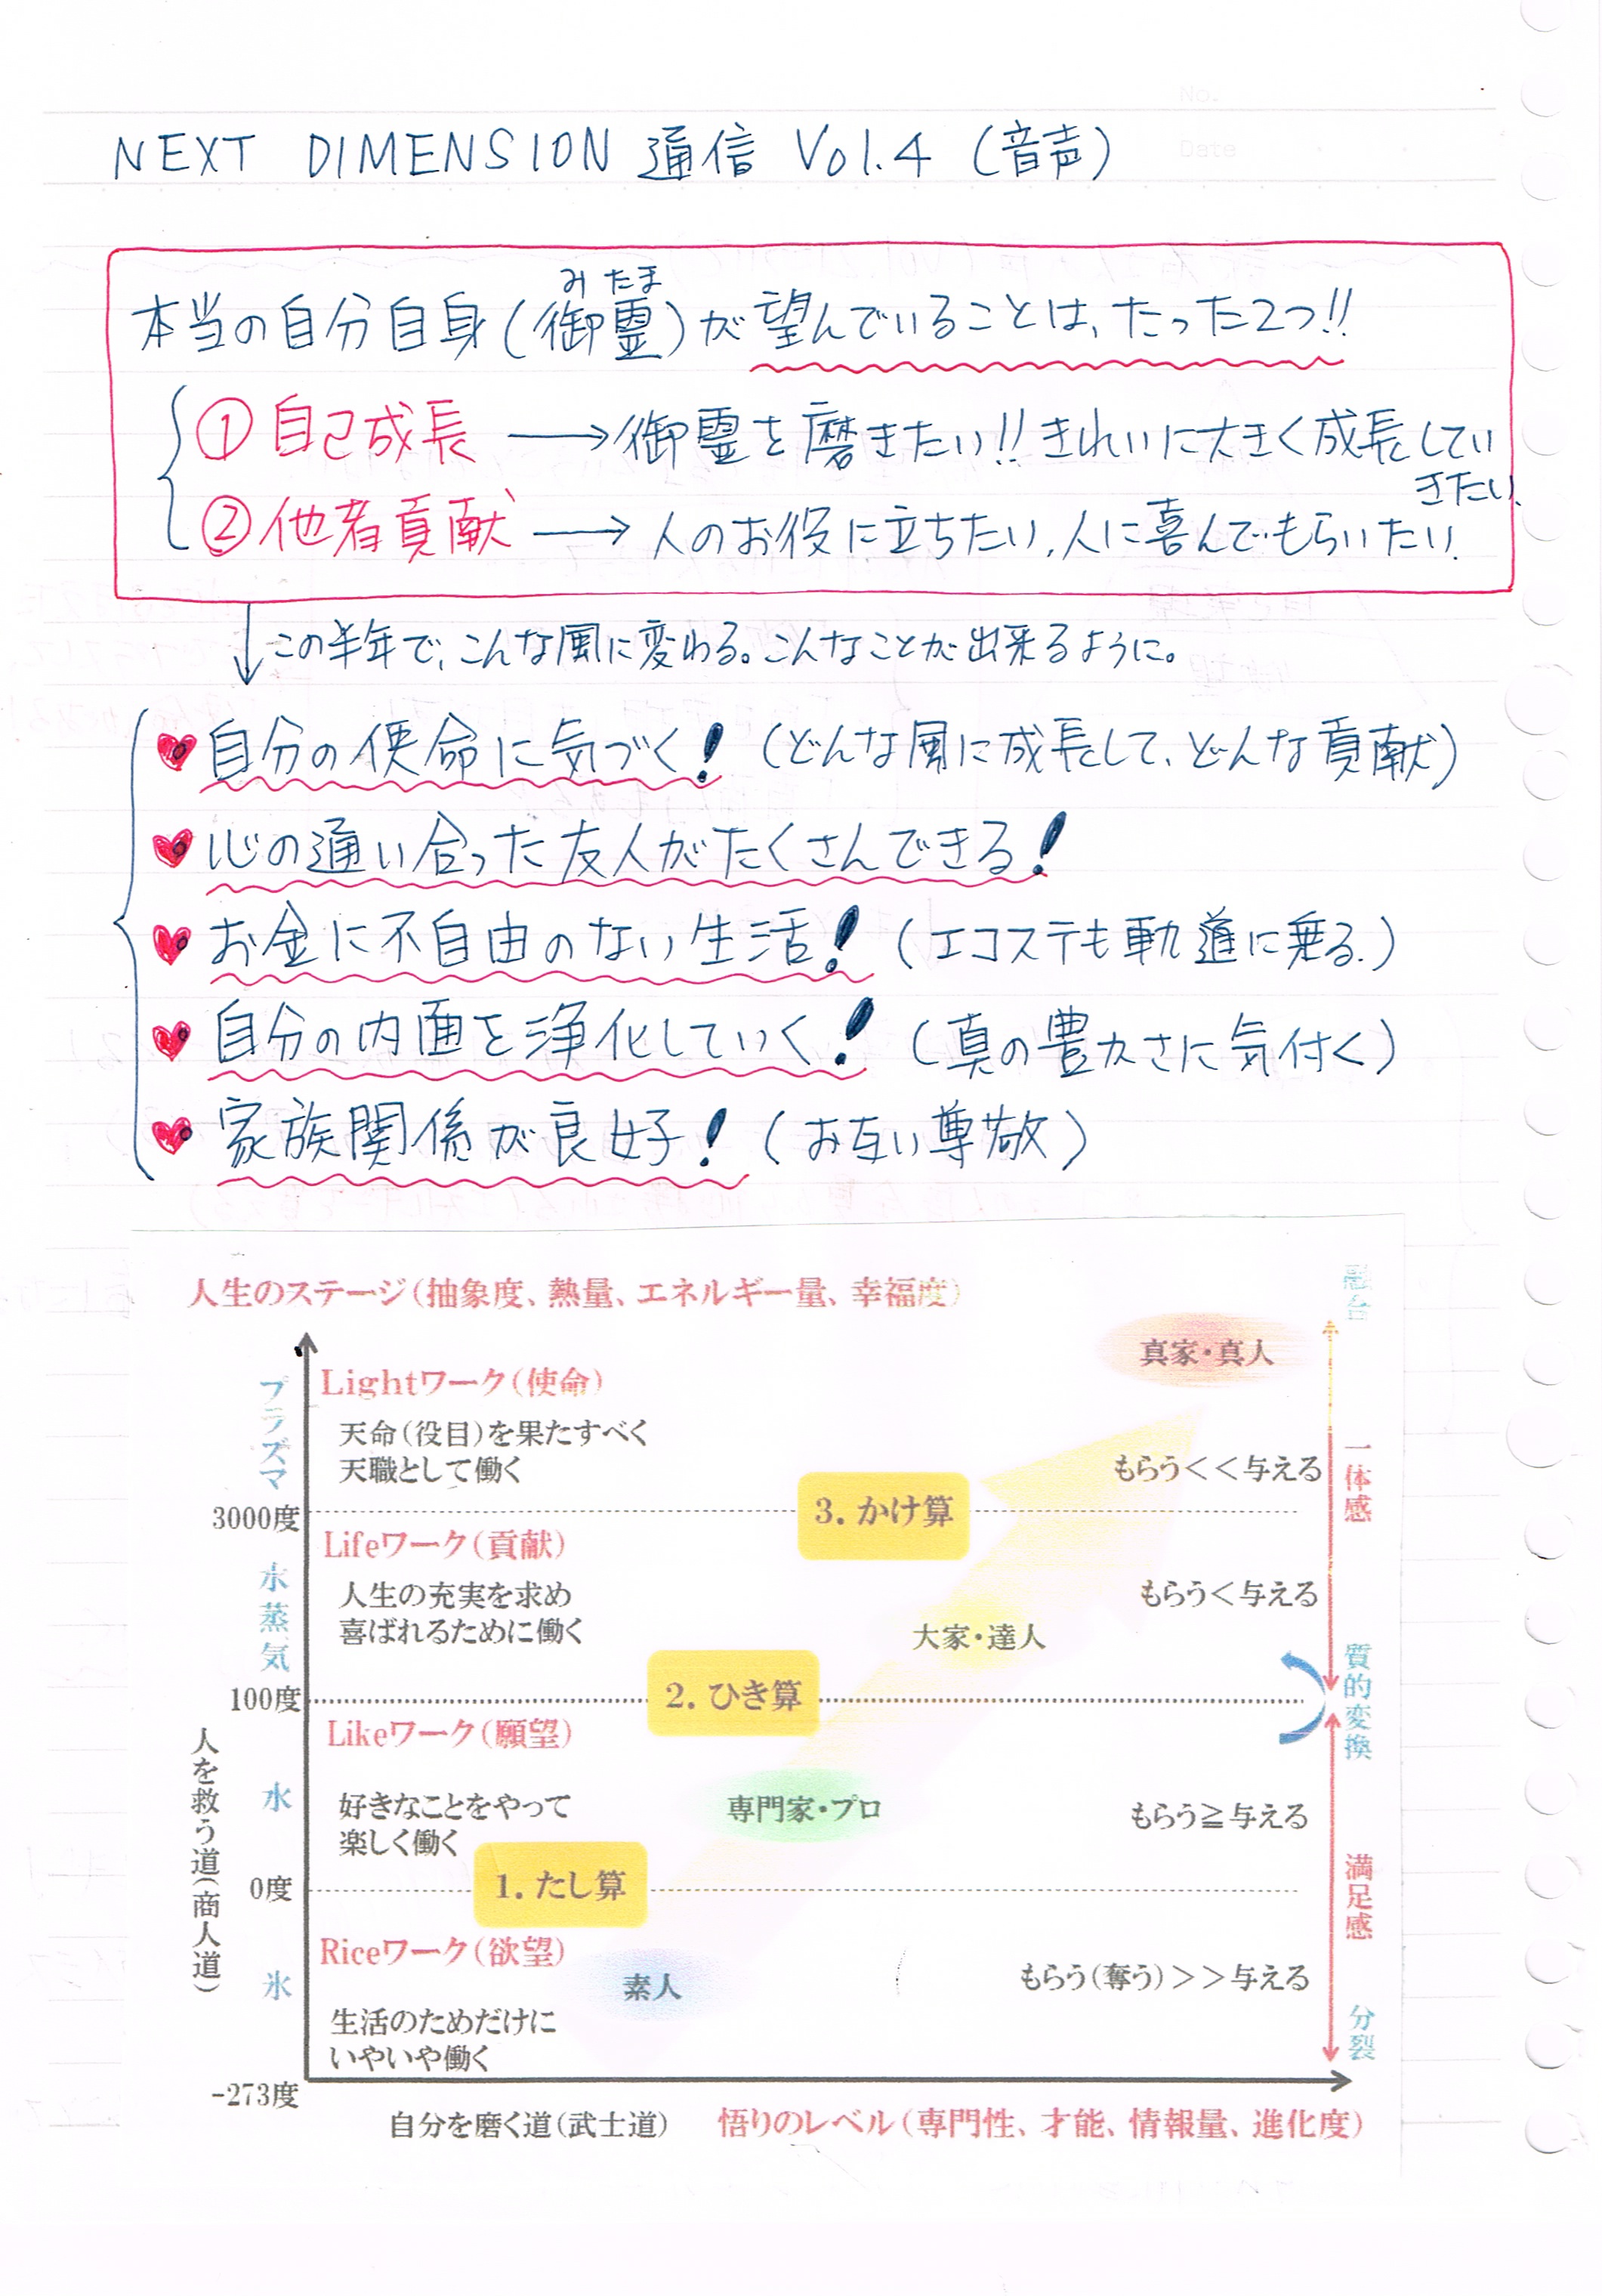 No.
Date
NEXT DIMENSION 通信 Vol.4 (音声)
みたま
本当の自分自身(御霊)が望んでいることは、たった2つ!!
① 自己成長 → 御霊を磨きたい!! きれいに大きく成長してい
きたい、
② 他者貢献 → 人のお役に立ちたい、人に喜んでもらいたい、
↓この半年で、こんな風に変わる。こんなことが出来るように。
♥自分の使命に気づく! (どんな風に成長して、どんな貢献)
♥心の通い合った友人がたくさんできる!
♥お金に不自由のない生活! (エコステも軌道に乗る。)
♥自分の内面を浄化していく! (真の豊かさに気付く)
♥家族関係が良好! (お互い尊敬)
人生のステージ(抽象度、熱量、エネルギー量、幸福度)
融合
真家・真人
プラズマ
Lightワーク(使命)
天命(役目)を果たすべく
天職として働く
もらう<<与える
一体感
3000度
3. かけ算
Lifeワーク(貢献)
水蒸気
人生の充実を求め
喜ばれるために働く
もらう<与える
大家・達人
質的変換
100度
2. ひき算
Likeワーク(願望)
人を救う道(商人道)
水
好きなことをやって
楽しく働く
専門家・プロ
もらう≧与える
満足感
0度
1. たし算
Riceワーク(欲望)
氷
素人
もらう(奪う)>>与える
生活のためだけに
いやいや働く
分裂
-273度
自分を磨く道(武士道)
悟りのレベル(専門性、才能、情報量、進化度)